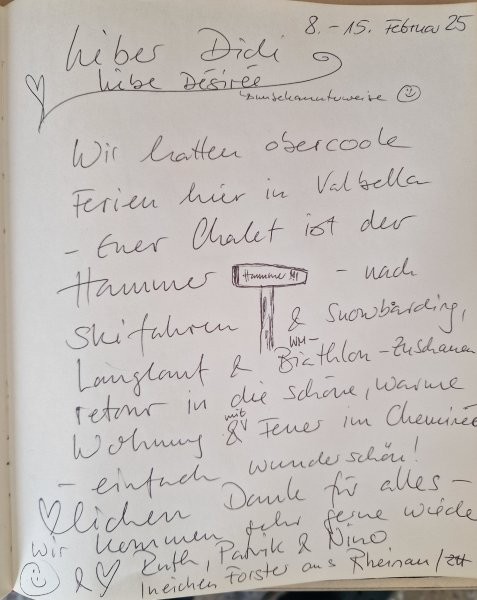 8. - 15. Februar 25
Lieber Didi
Liebe Désirée
unbekannterweise
Wir hatten obercoole
Ferien hier in Valbella
- Euer Chalet ist der
Hammer Hammer - nach
Skifahren & Snowboarding,
Langlauf & WM-Biathlon-Zuschauen
retour in die schöne, warme
Wohnung mit & Feuer im Cheminée
- einfach wunderschön!
lichen Dank für alles -
wir kommen sehr gerne wieder
& Ruth, Patrik & Nino
Ineichen Forster aus Rheinau/ZH